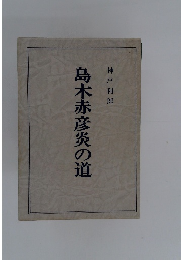 島木赤彦炎の道
神戸利郎